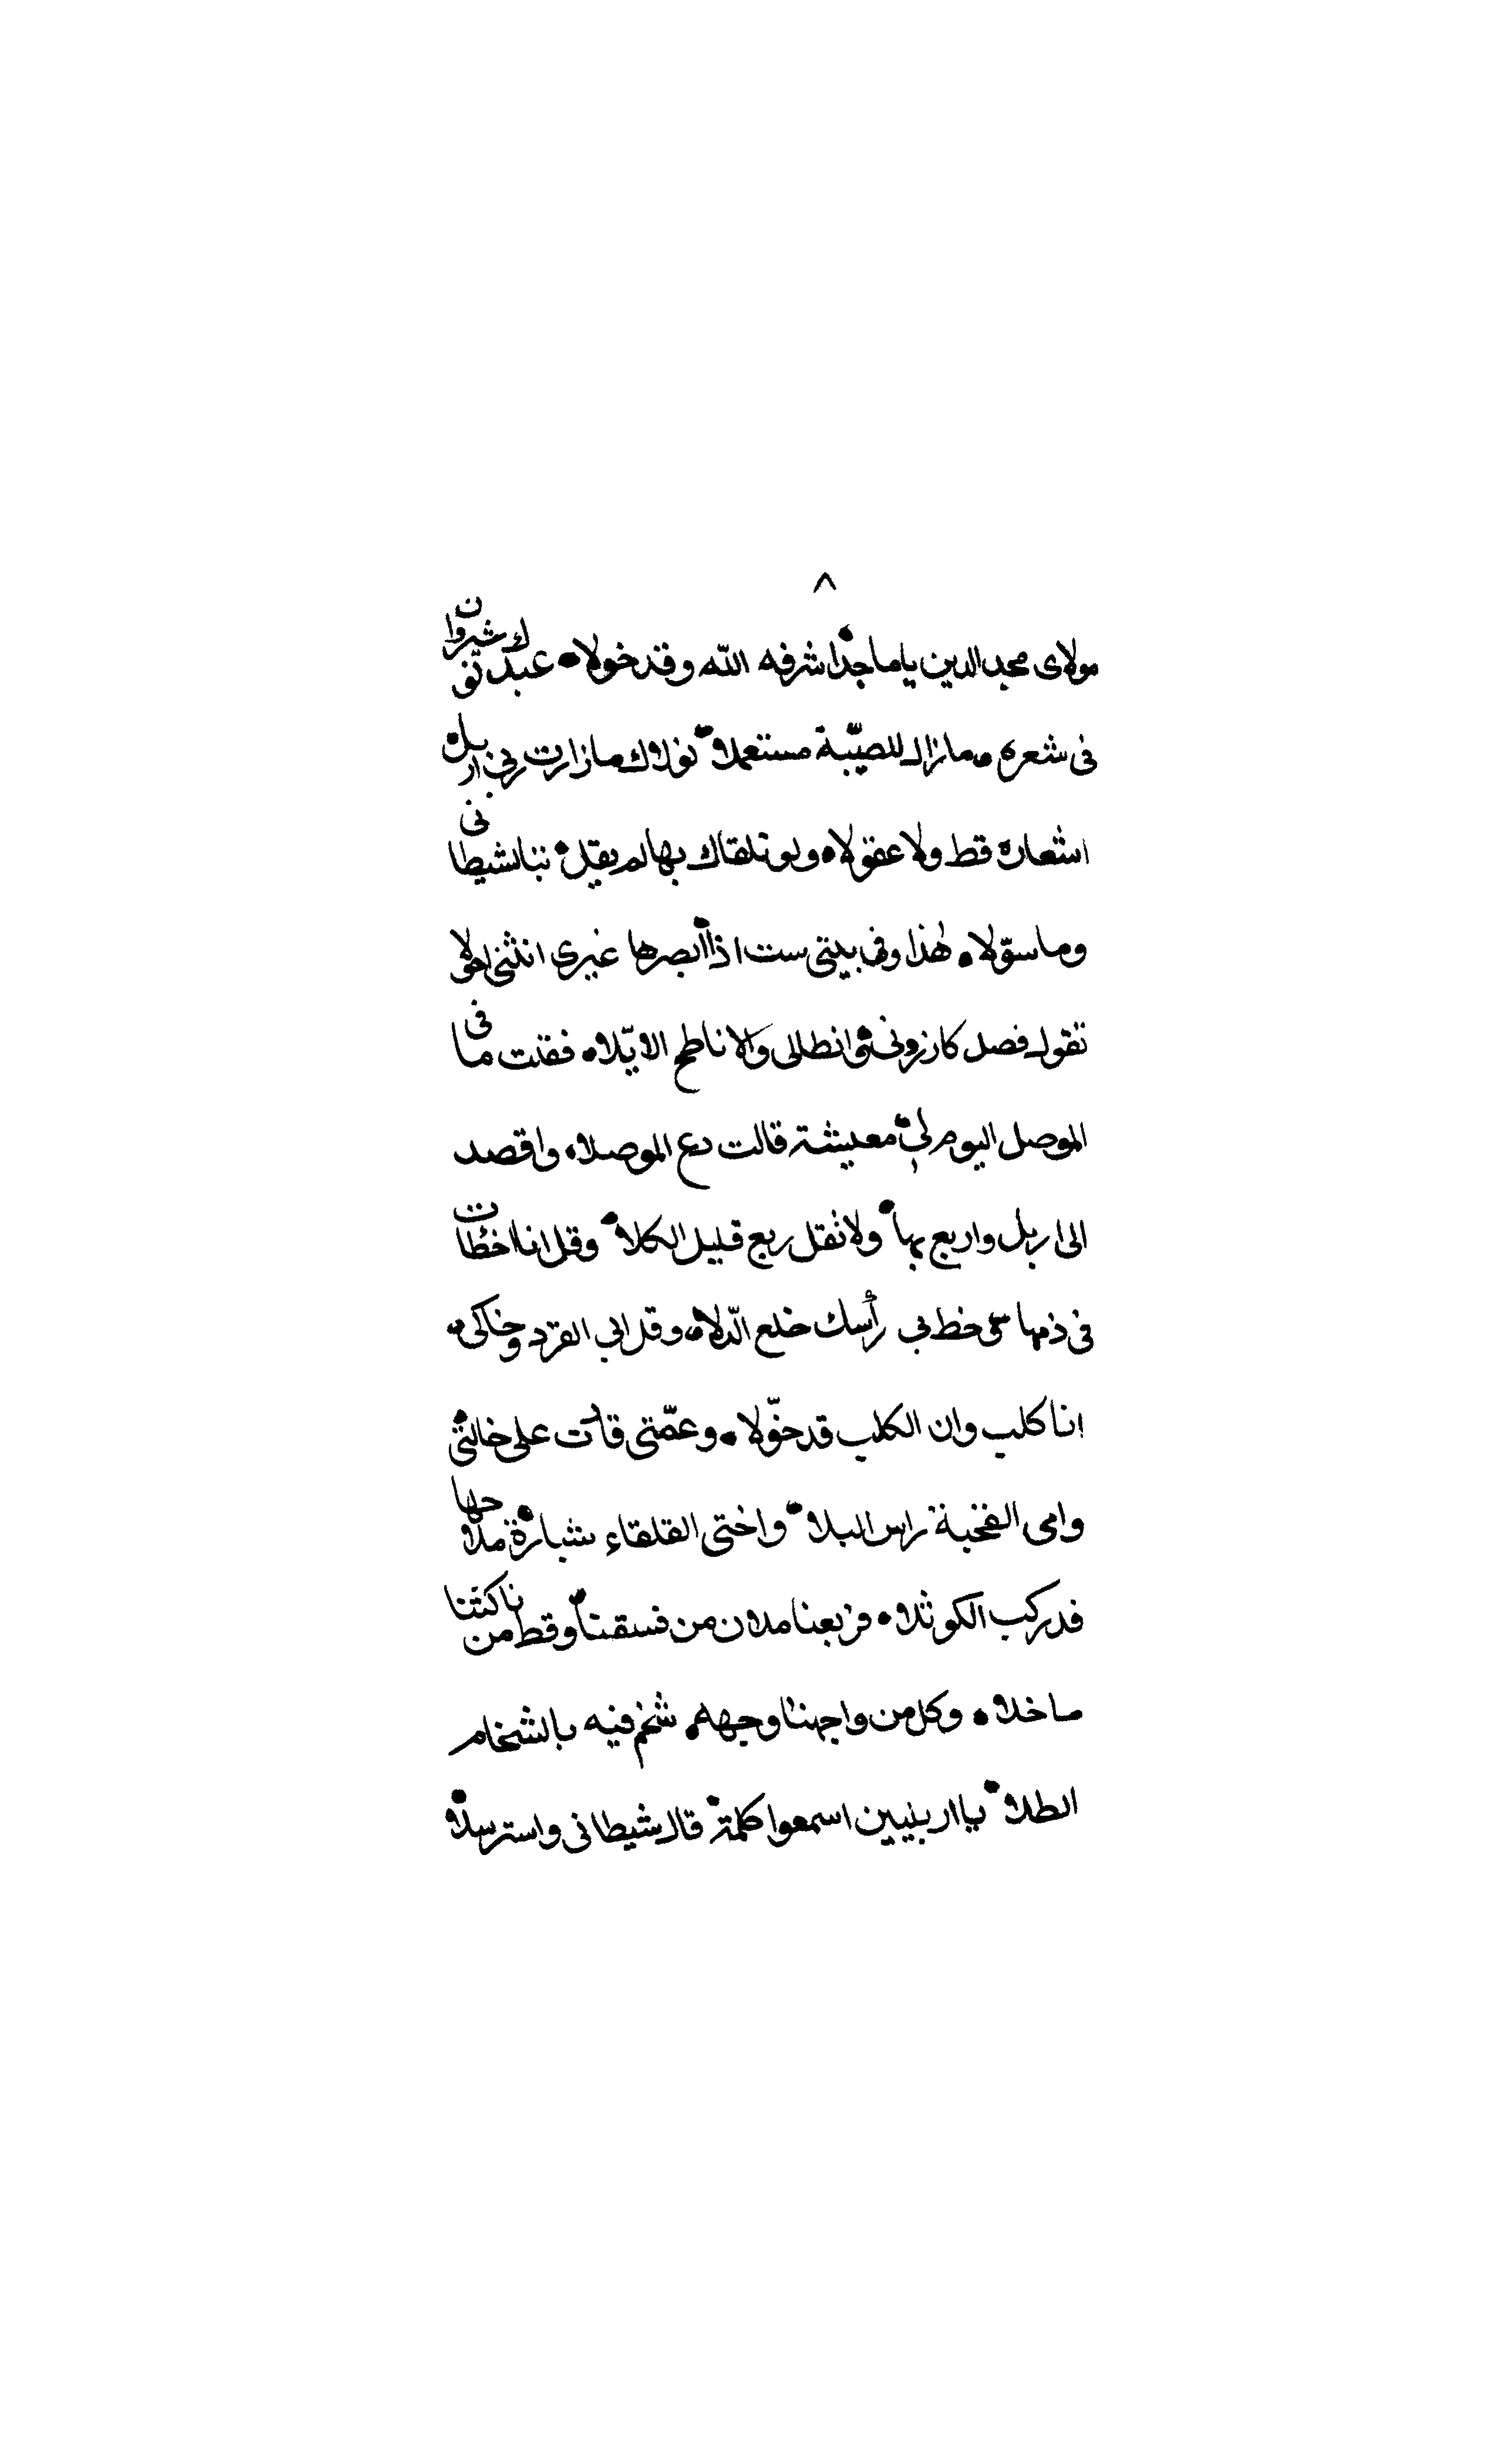 ٨
مولاى مجد الدين ياماجدا شرفه الله وقد خولاه عبدك نوشروان
فى شعره ومازال للصيّبة مستعملا لولاك مازارت ربى اربل
اشعاره قط ولا عقولاه ولو تلقاك بها لم يقل تبا لشيطانى
وما سوّلاه هذا وفى بيتى ست اذا ابصرها غيرى انثنى احولا
تقول فصل كازرونى وانطالى والا ناطح الايّلاه فقلت مافى
الموصل اليوم لى معيشة قالت دع الموصلاه واقصد
الى اربل واربع بها ولا تقل ربع قليل الكلا وقل انا اخطات
فى ذمها حط فى رأسك خلع الدلاه وقل ابى القرد وخالى
انا كلب وان الكلب قد خوّلاه وعمّتى قادت على خالتى
وامى القحبة راس البلا واختى القلقاء شبارة ملاحها
قد ركب الكوثلاه فربعنا ملان من فسقنا وقط من ناكتنا
ما خلاه وكل من واجهنا وجهه شخم فيه بالشخام
الطلا ياار بليين اسمعوا كلمة قال شيطانى واسترسلا